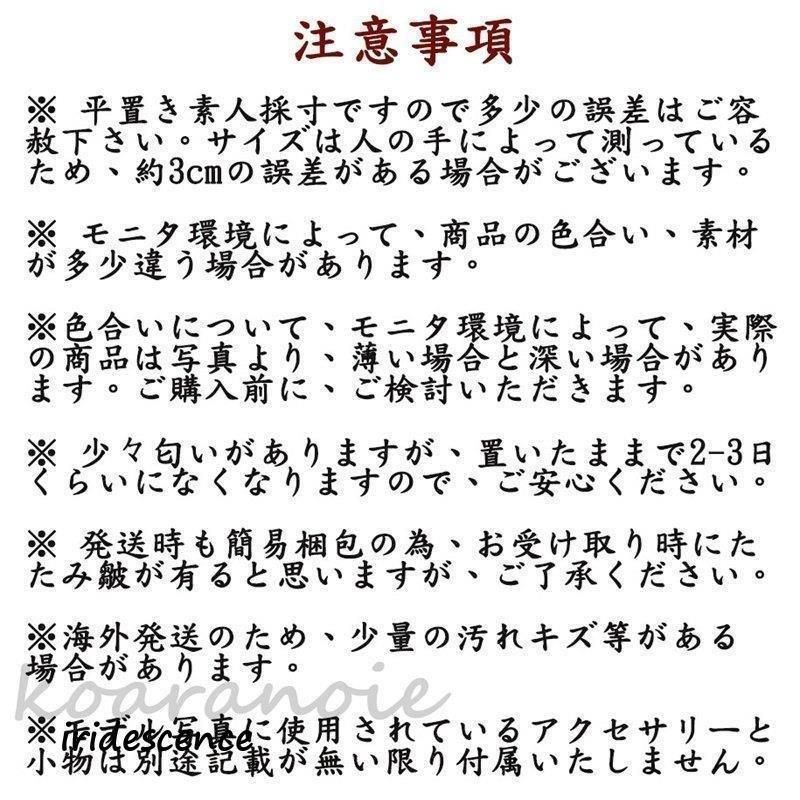 注意事項
※ 平置き素人採寸ですので多少の誤差はご容
赦下さい。サイズは人の手によって測っている
ため、約3cmの誤差がある場合がございます。
※ モニタ環境によって、商品の色合い、素材
が多少違う場合があります。
※色合いについて、モニタ環境によって、実際
の商品は写真より、薄い場合と深い場合があり
ます。ご購入前に、ご検討いただきます。
※ 少々匂いがありますが、置いたままで2-3日
くらいになくなりますので、ご安心ください。
※ 発送時も簡易梱包の為、お受け取り時にた
たみ皺が有ると思いますが、ご了承ください。
※海外発送のため、少量の汚れキズ等がある
場合があります。
koaranoie
※モデル写真に使用されているアクセサリーと
iridescence
小物は別途記載が無い限り付属いたしません。